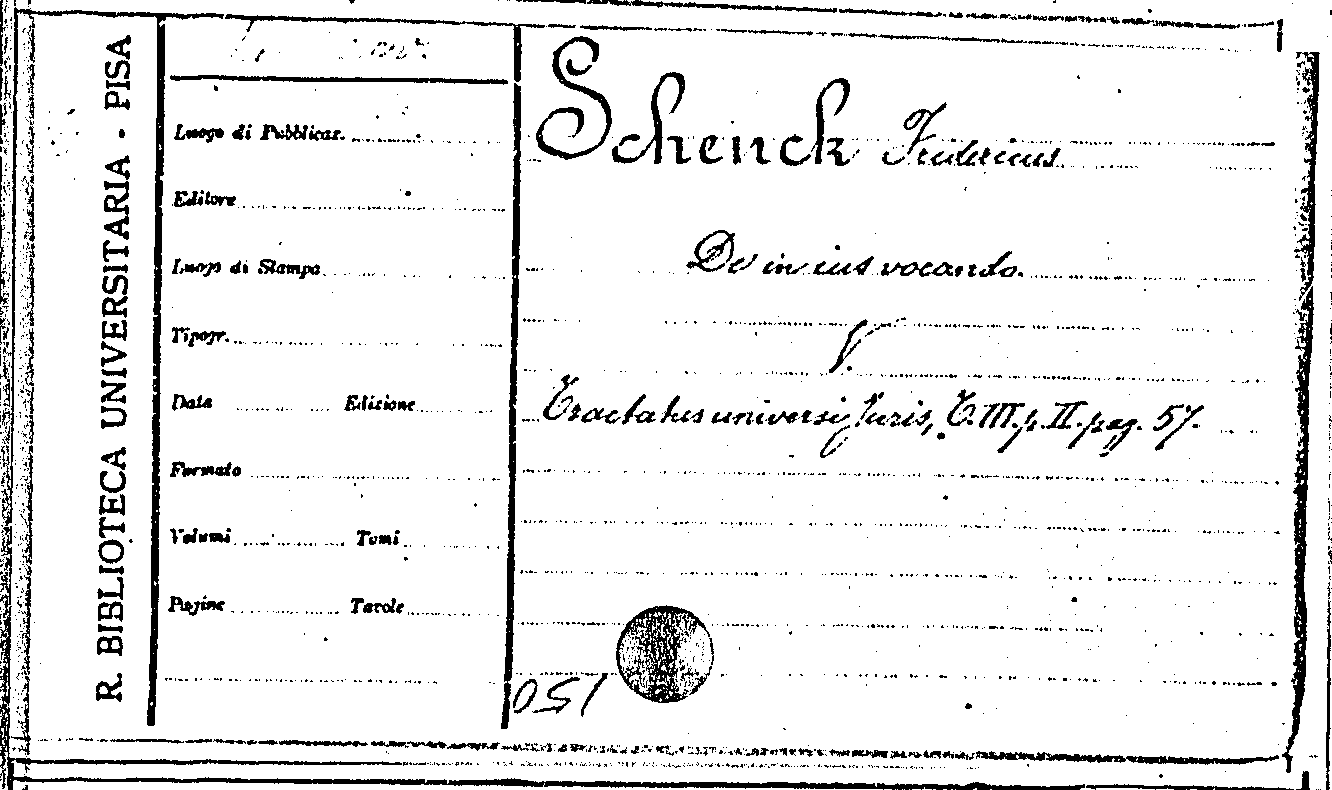 R. BIBLIOTECA UNIVERSITARIA - PISA
Luogo di Pubblicaz.
Editore
Luogo di Stampa
Tipogr.
Data Edizione
Formato
Volumi Tomi
Pagine Tavole
Schenck Fredericus
De in ius vocando.
V.
Tractatus universi Juris, T. III. p. II. pag. 57.